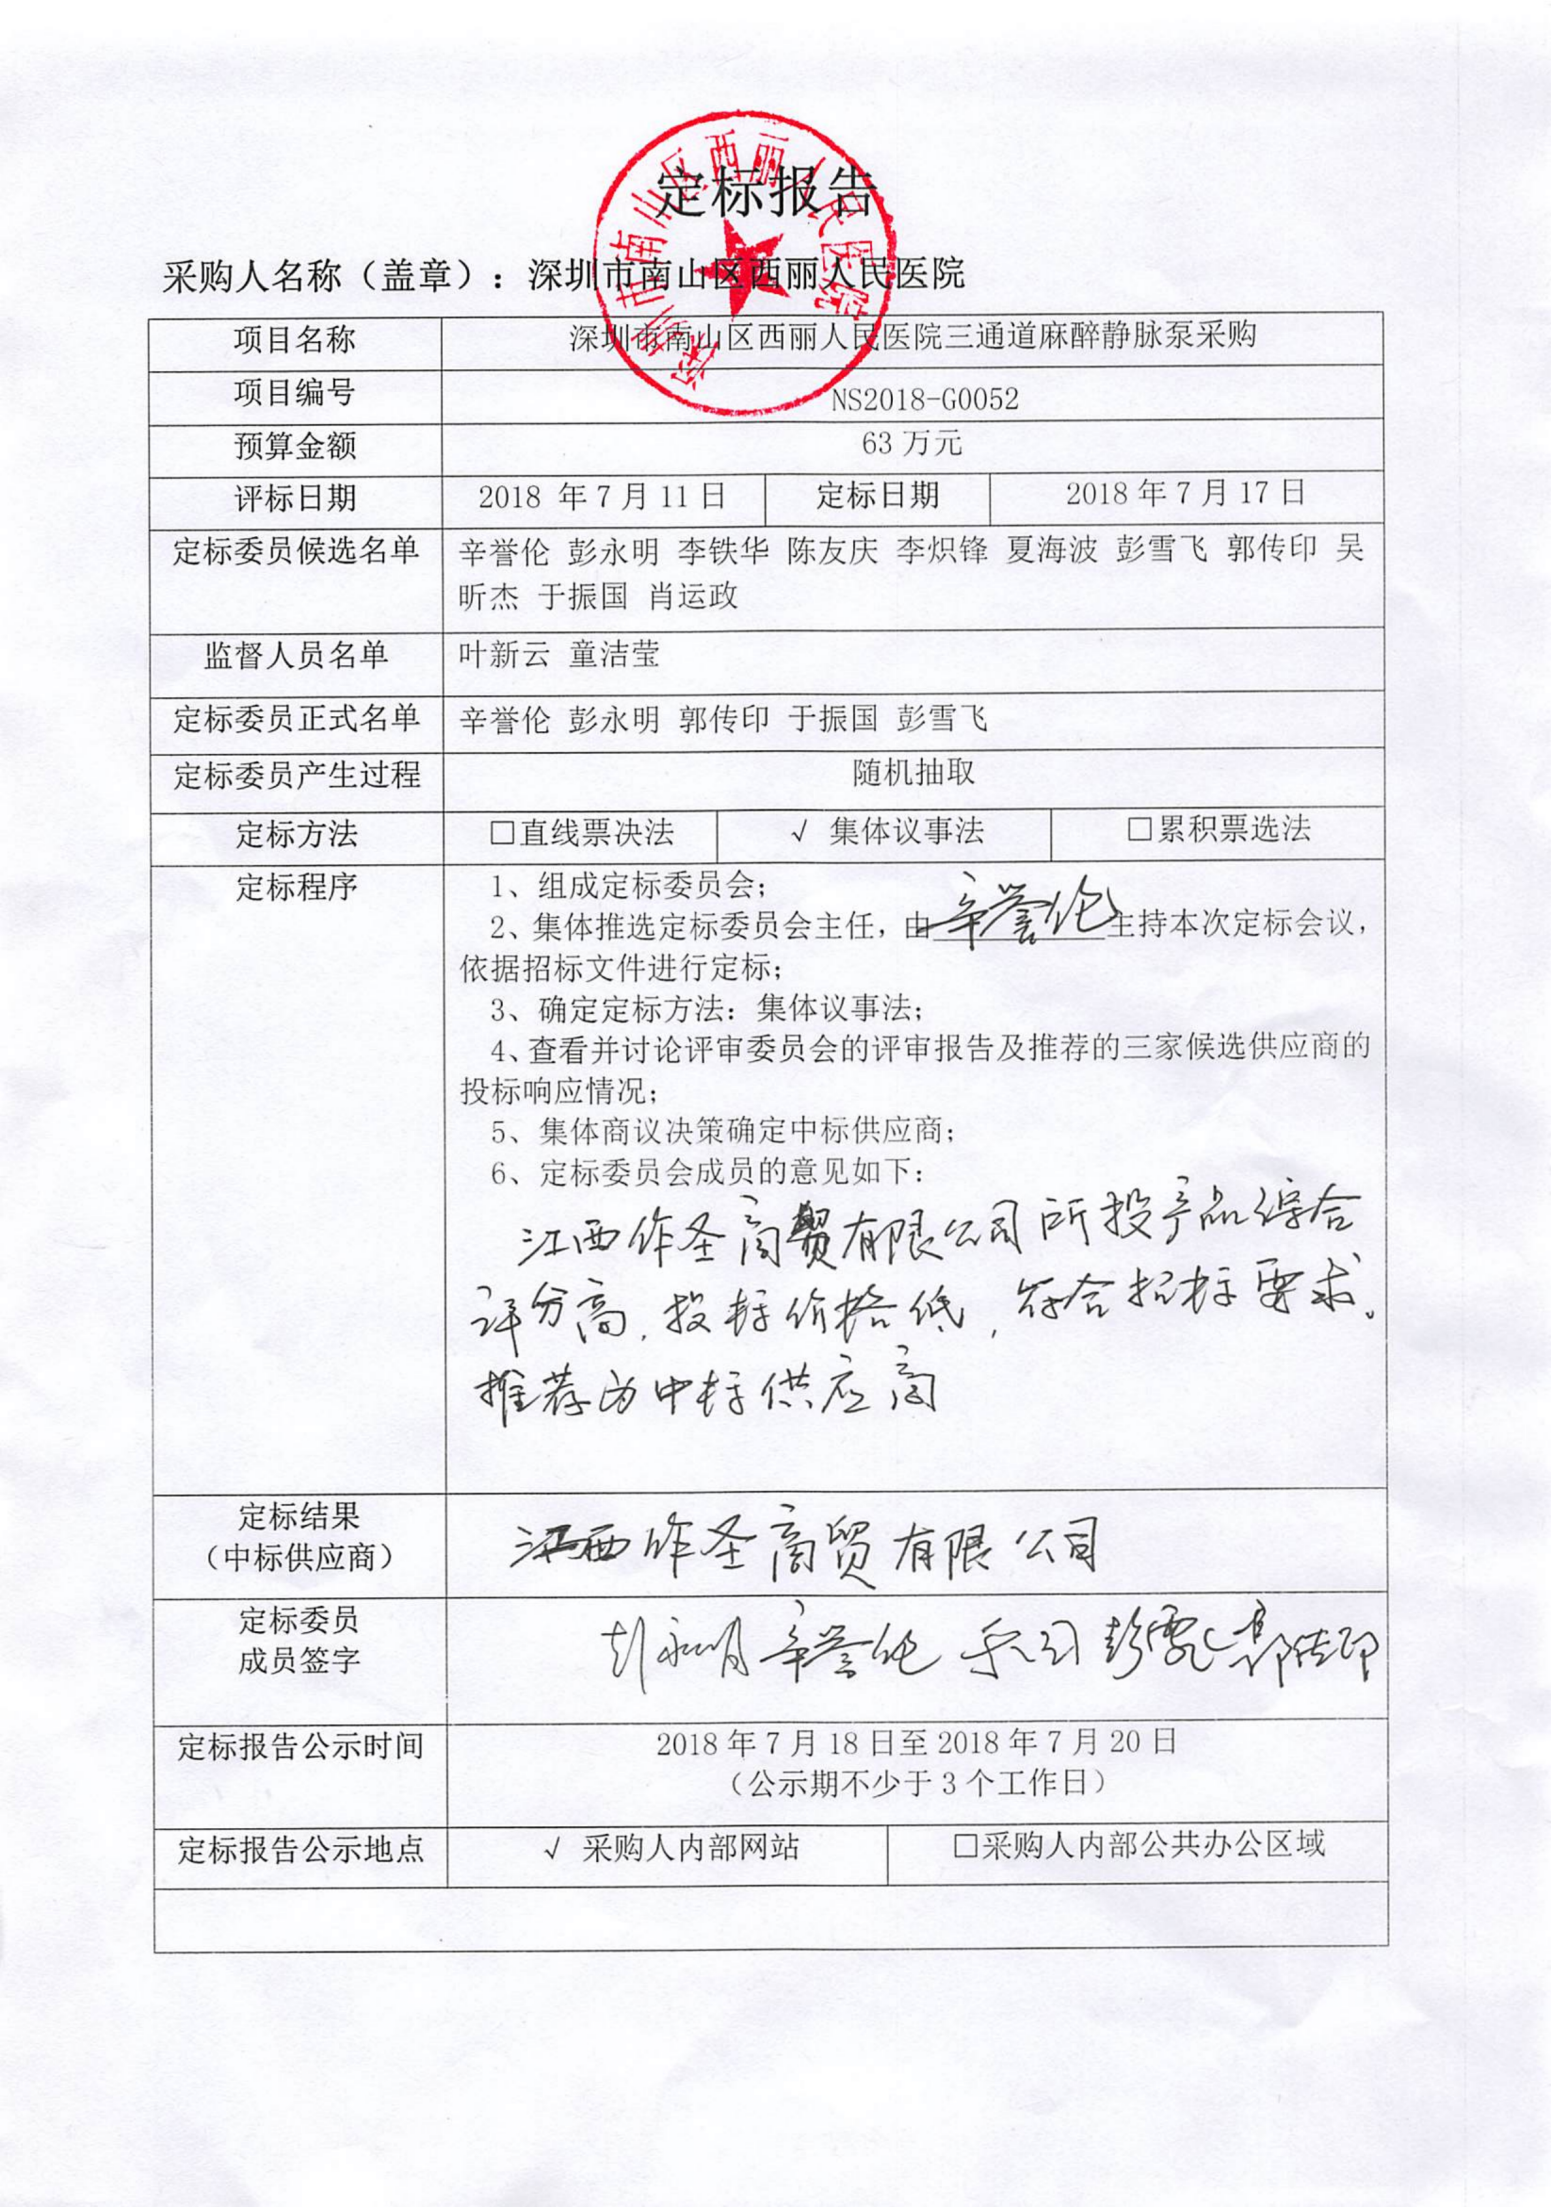 定标报告
深圳市南山区西丽人民医院
采购人名称（盖章）：深圳市南山区西丽人民医院
项目名称 深圳市南山区西丽人民医院三通道麻醉静脉泵采购
项目编号 NS2018-G0052
预算金额 63万元
评标日期 2018 年 7 月 11 日 定标日期 2018 年 7 月 17 日
定标委员候选名单 辛誉伦 彭永明 李铁华 陈友庆 李炽锋 夏海波 彭雪飞 郭传印 吴
昕杰 于振国 肖运政
监督人员名单 叶新云 童洁莹
定标委员正式名单 辛誉伦 彭永明 郭传印 于振国 彭雪飞
定标委员产生过程 随机抽取
定标方法 □直线票决法 √ 集体议事法 □累积票选法
定标程序 1、组成定标委员会；
2、集体推选定标委员会主任，由辛誉伦主持本次定标会议，
依据招标文件进行定标；
3、确定定标方法：集体议事法；
4、查看并讨论评审委员会的评审报告及推荐的三家候选供应商的
投标响应情况；
5、集体商议决策确定中标供应商；
6、定标委员会成员的意见如下：
江西作圣商贸有限公司所投产品综合
评分高，投标价格低，符合招标要求。
推荐为中标供应商
定标结果
（中标供应商） 江西作圣商贸有限公司
定标委员
成员签字 彭永明 辛誉伦 彭雪飞 郭传印
定标报告公示时间 2018 年 7 月 18 日至 2018 年 7 月 20 日
（公示期不少于 3 个工作日）
定标报告公示地点 √ 采购人内部网站 □采购人内部公共办公区域